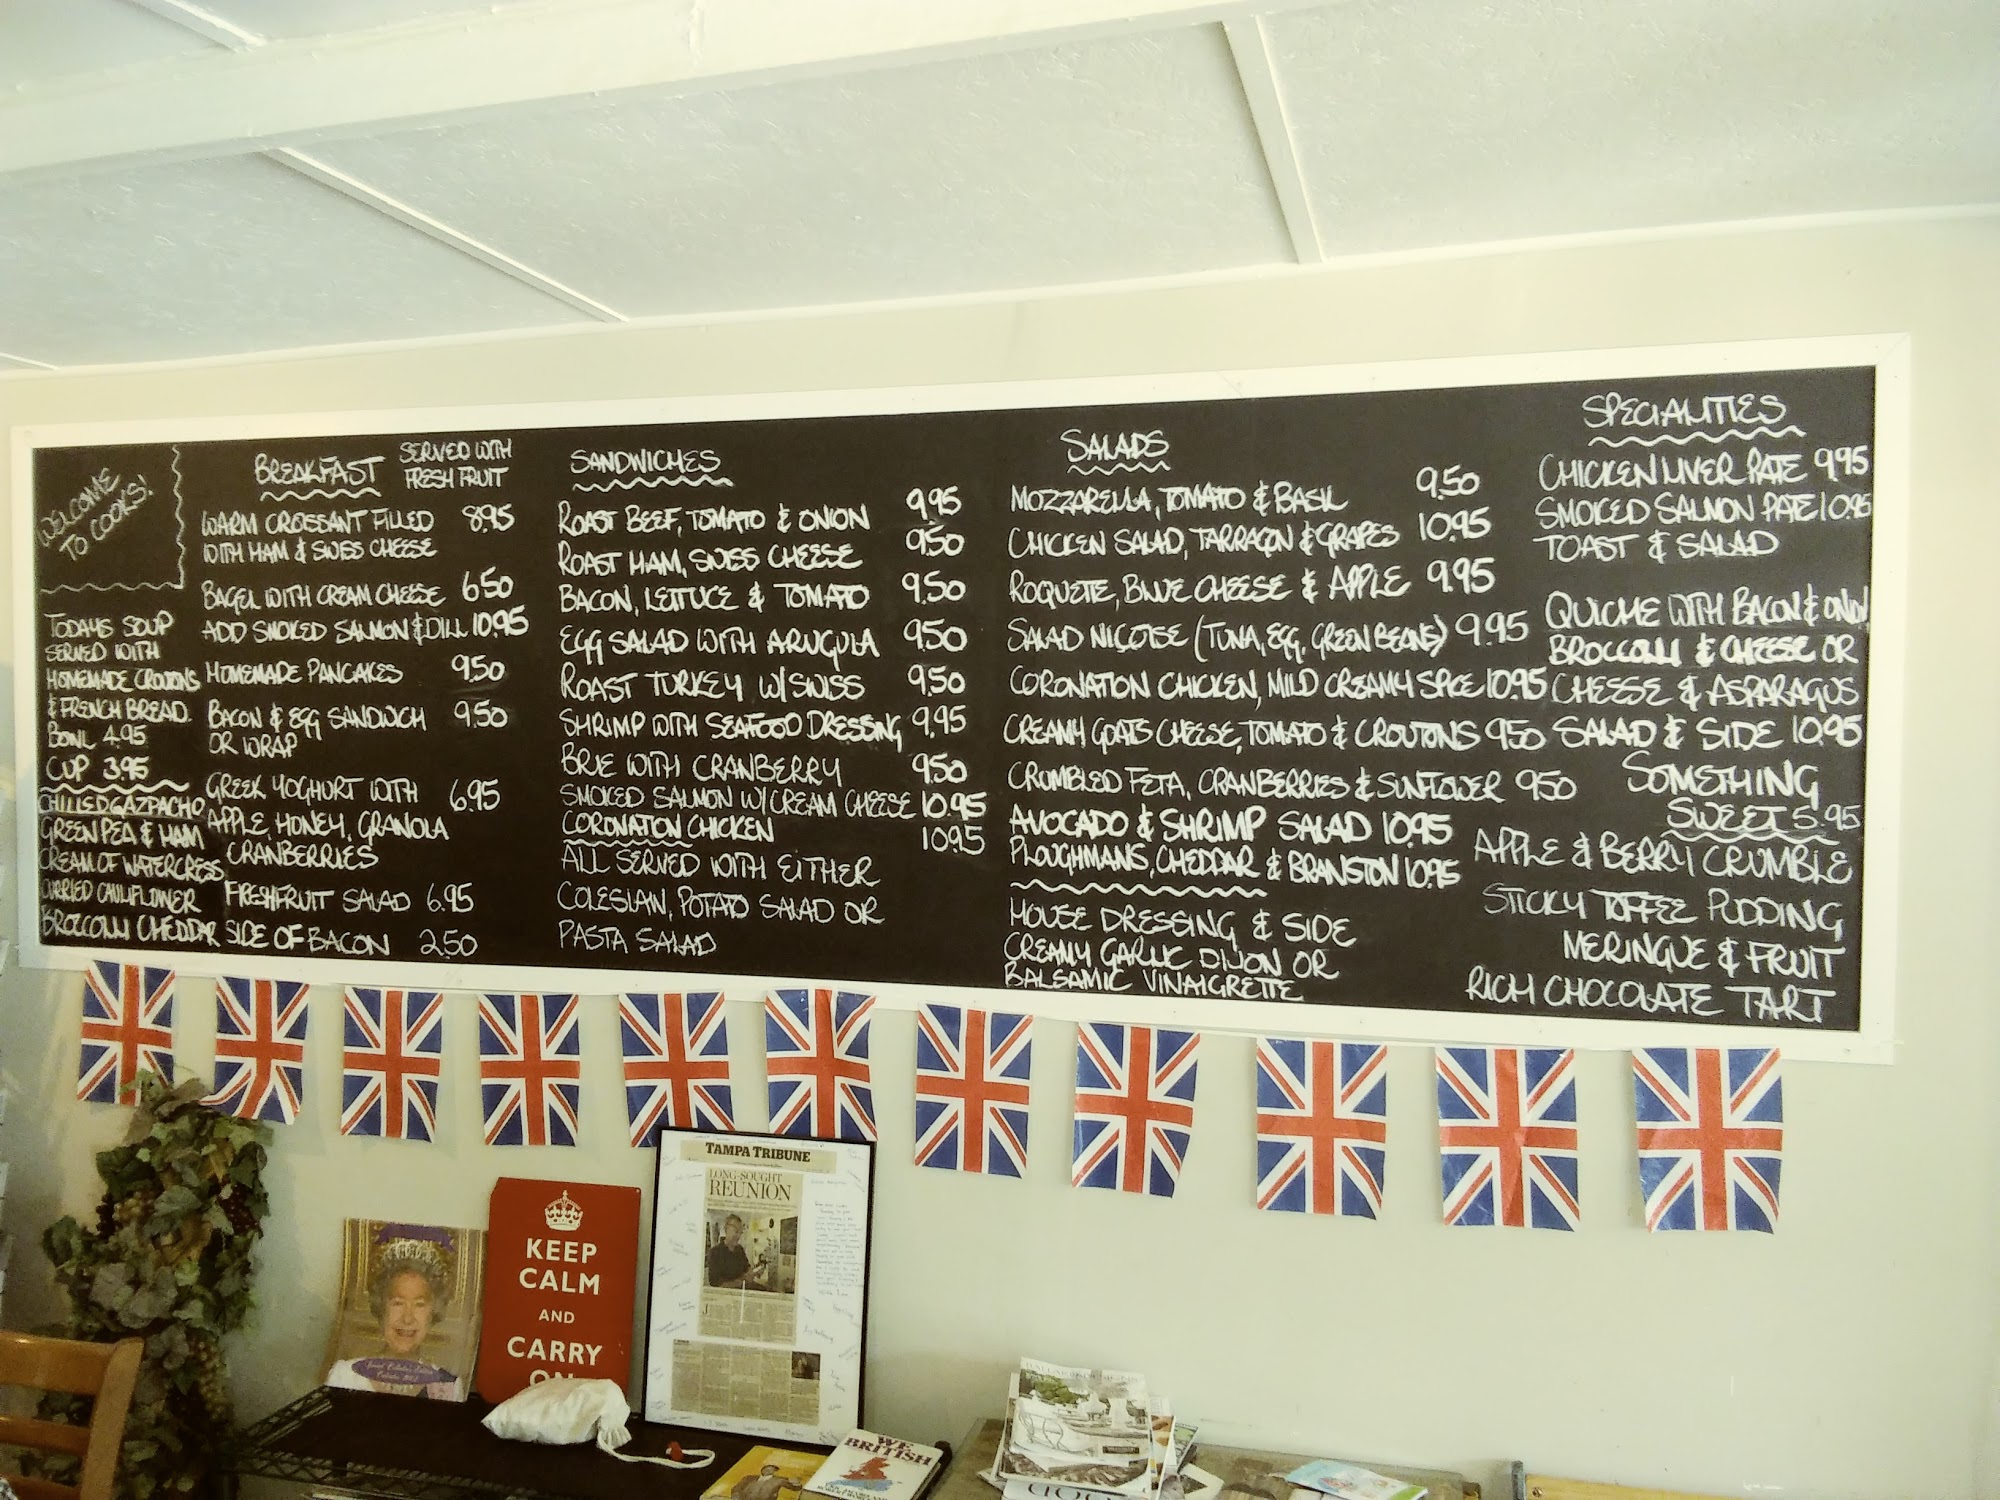 WELCOME
TO COOKS!
TODAYS SOUP
SERVED WITH
HOMEMADE CROUTONS
& FRENCH BREAD.
BOWL 4.95
CUP 3.95
CHILLED GAZPACHO
GREEN PEA & HAM
CREAM OF WATERCRESS
CURRIED CAULIFLOWER
BROCCOLLI CHEDDAR
BREAKFAST SERVED WITH
FRESH FRUIT
WARM CROISSANT FILLED 8.95
WITH HAM & SWISS CHEESE
BAGEL WITH CREAM CHEESE 6.50
ADD SMOKED SALMON & DILL 10.95
HOMEMADE PANCAKES 9.50
BACON & EGG SANDWICH 9.50
OR WRAP
GREEK YOGHURT WITH 6.95
APPLE, HONEY, GRANOLA
CRANBERRIES
FRESH FRUIT SALAD 6.95
SIDE OF BACON 2.50
SANDWICHES
ROAST BEEF, TOMATO & ONION 9.95
ROAST HAM, SWISS CHEESE 9.50
BACON, LETTUCE & TOMATO 9.50
EGG SALAD WITH ARUGULA 9.50
ROAST TURKEY W/SWISS 9.50
SHRIMP WITH SEAFOOD DRESSING 9.95
BRIE WITH CRANBERRY 9.50
SMOKED SALMON W/CREAM CHEESE 10.95
CORONATION CHICKEN 10.95
ALL SERVED WITH EITHER
COLESLAW, POTATO SALAD OR
PASTA SALAD
SALADS
MOZZARELLA, TOMATO & BASIL 9.50
CHICKEN SALAD, TARRAGON & GRAPES 10.95
ROQUETTE, BLUE CHEESE & APPLE 9.95
SALAD NICOISE (TUNA, EGG, GREEN BEANS) 9.95
CORONATION CHICKEN, MILD CREAMY SPICE 10.95
CREAMY GOATS CHEESE, TOMATO & CROUTONS 9.50
CRUMBLED FETA, CRANBERRIES & SUNFLOWER 9.50
AVOCADO & SHRIMP SALAD 10.95
PLOUGHMANS, CHEDDAR & BRANSTON 10.95
HOUSE DRESSING & SIDE
CREAMY GARLIC DIJON OR
BALSAMIC VINAIGRETTE
SPECIALITIES
CHICKEN LIVER PATE 9.95
SMOKED SALMON PATE 10.95
TOAST & SALAD
QUICHE WITH BACON & ONION
BROCCOLLI & CHEESE OR
CHEESE & ASPARAGUS
SALAD & SIDE 10.95
SOMETHING
SWEET 5.95
APPLE & BERRY CRUMBLE
STICKY TOFFEE PUDDING
MERINGUE & FRUIT
RICH CHOCOLATE TART
KEEP
CALM
AND
CARRY
ON
TAMPA TRIBUNE
LONG-SOUGHT
REUNION
WE
BRITISH